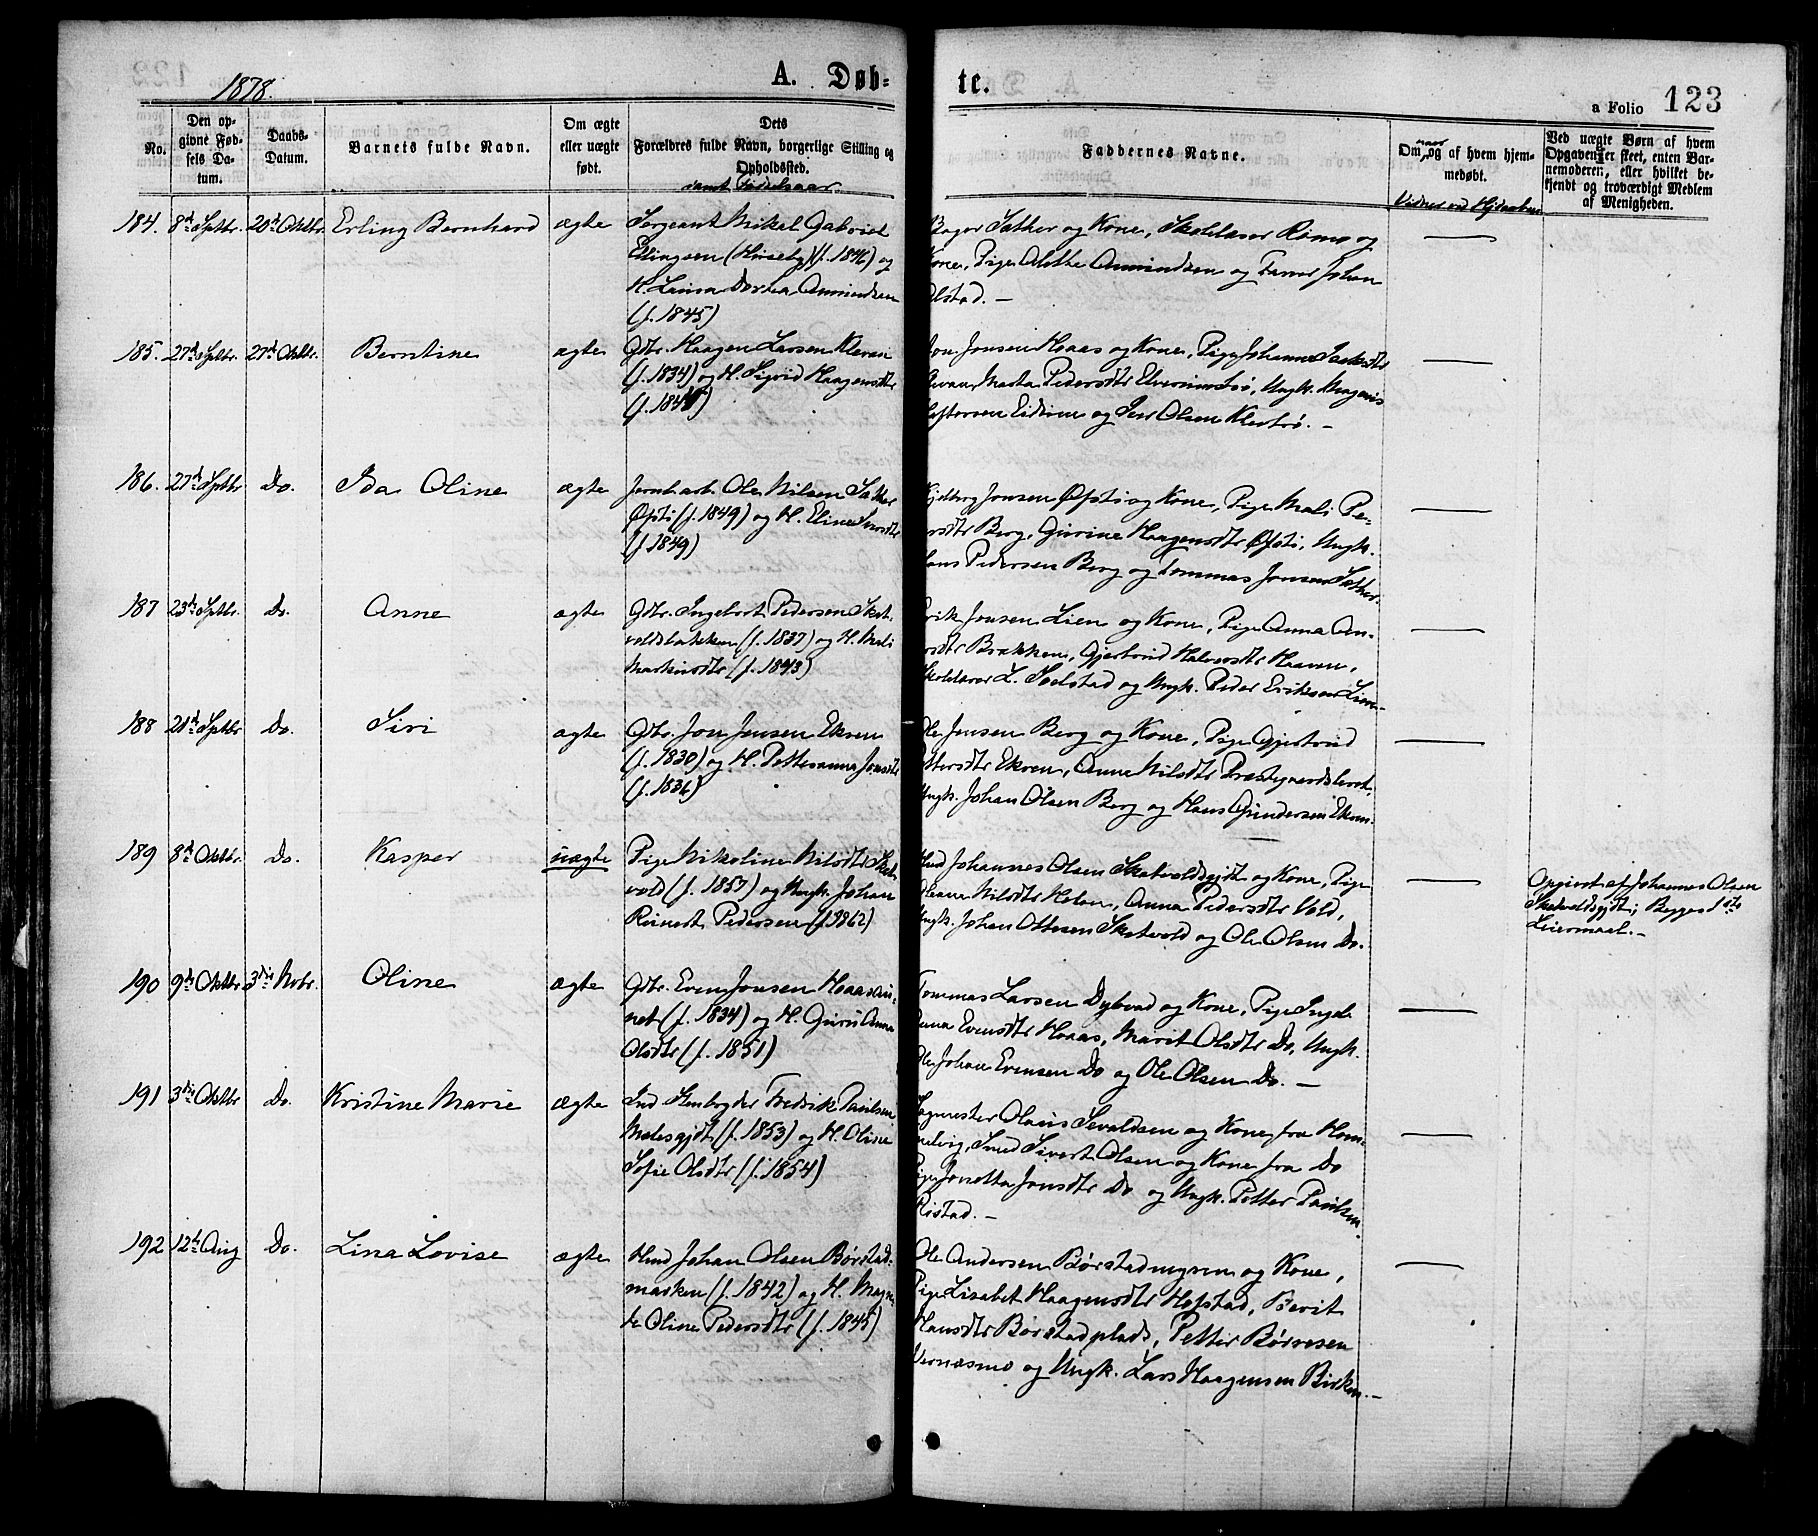 1878.
A. Døb=
te.
a Folio 123
No.
Den op-
givne Fød-
sels Da-
tum.
Daabs-
Datum.
Barnets fulde Navn.
Om ægte
eller uægte
født.
Dets
Forældres fulde Navn, borgerlige Stilling og
Opholdssted.
samt Fødselsaar.
Faddernes Navne.
Om, naar og af hvem hjem-
medøbt.
Vidner ved Hjdaaben
Ved uægte Børn af hvem
Opgaven er skeet, enten Bar-
nemoderen, eller hvilket be-
kjendt og troværdigt Medlem
af Menigheden.
184. 8de Septbr. 20de Oktbr. Erling Bernhard ægte
Sergeant Mikal Gabriel
Erlingsen (Huseby) (f. 1846) og
H. Laura Dortea Amundsen
(f. 1845)
Bager Sather og Kone, Skolelærer Rømo og
Kone, Pige Alethe Amundsen og Farver Johan
Olstad. —
185. 27de Septbr. 27de Oktbr. Berntine ægte
Gdbr. Haagen Larsen Kleven
(f. 1834) og H. Sigrid Haagensdtr
Jon Jonsen Hoaas og Kone, Pige Johanna
Marta Pedersdtr Ungk. Magnus
Eidum og Iver Olsen
186. 27de Septbr Do. Ida Oline ægte
Jernbarb. Ole Nilsen Sather
Øfsti (f. 1849) og H. Eline Iversdtr
(f. 1849)
Jonsen Øfsti og Kone, Pige Mali Pe-
rsdtr Berg, Gurine Haagensdtr Øfsti, Ungk.
Hans Pedersen Berg og Tommas Jonsen Sather.
187 23de Septbr. Do. Anne ægte
Gdbr. Ingebort Pedersen Skat-
voldsbakken (f. 1837) og H. Mali
Markusdtr (f. 1843)
Erik Jonsen Lien og Kone, Pige Anna An-
rsdtr Brækken, Gjertrud Halvorsdtr Haaven,
Skolelærer L. Solstad og Ungk. Peder Eriksen Lien.—
188 21de Septbr Do. Siri ægte
Gdbr. Jon Jonsen Ekren
(f. 1830) og H. Petternanna Jonsdtr
(f. 1836)
Ole Jonsen Berg og Kone, Pige Gjertrud
Ottersdtr Ekren, Anne Nilsdtr
Ungk. Johan Olsen Berg og Hans Gundersen Ekren.
189 8de Oktbr. Do. Kasper uægte
Pige Nikoline Nilsdtr Skat-
vold (f. 1857) og Ungk. Johan
Reinert Pedersen (f. 1862)
Hmd Johannes Olsen Skatvoldsgjdt og Kone, Pige
Oleana Nilsdtr Holan, Anna Pedersdtr Vold,
Ungk. Johan Ottesen Skatvold og Ole Olsen Do.
Opgivet af Johannes Olsen
Skatvoldsgjdt; Begges 1ste
Leiermaal. —
190 9de Oktbr 3die Nvbr. Oline ægte
Gdbr. Even Jonsen Hoaasau-
net (f. 1834) og H. Guru Anna
Olsdtr (f. 1851)
Tommas Larsen Dybvad og Kone, Pige Inge-
anna Evensdtr Hoaas, Marit Olsdtr Do, Ungk.
Ole Johan Evensen Do og Ole Olsen Do. —
191 3die Oktbr Do. Kristine Marie ægte
Ind Stenbryder Fredrik Paulsen
(f. 1853) og H. Oline
Sofie Olsdtr (f. 1854)
Sagmester Olaus Sevaldsen og Kone, fra Hom-
melvig, Smed Sivert Olsen og Kone fra Do
Pige Jonetta Jonsdtr Do og Ungk. Petter Paulsen
Ristad. —
192 12te Aug Do. Lina Lovise ægte
Hmd Johan Olsen Børstad-
marken (f. 1842) og H. Magn-
Oline Pedersdtr (f. 1845)
Ole Andersen Børstadmyren og Kone,
Pige Lisabet Haagensdtr Hofstad, Berit
Hansdtr Børstadplads, Petter Børresen
Værnæsmo og Ungk. Lars Haagensen Birken. —